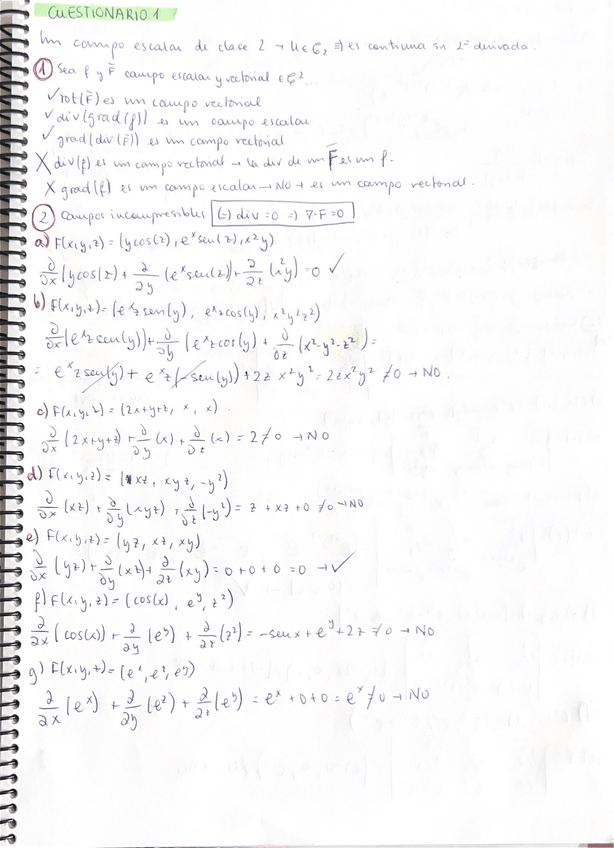 CUESTIONARIO 1
Un campo escalar de clase 2 → u ∈ C₂ ⇒ es continua su 2ª derivada.
① Sea f y F̄ campo escalar y vectorial ∈ C²...
✓ rot(F̄) es un campo vectorial
✓ div(grad(f)) es un campo escalar
✓ grad(div(F̄)) es un campo vectorial
X div(f) es un campo vectorial → la div de un F̄ es un f.
X grad(f) es un campo escalar → NO → es un campo vectorial.
② Campos incompresibles (=) div = 0 => ∇·F = 0
a) F(x,y,z) = (y cos(z), eˣ sen(z), x²y)
∂/∂x (y cos(z) + ∂/∂y (eˣ sen(z)) + ∂/∂z (x²y) = 0 ✓
b) F(x,y,z) = (eˣz sen(y), eˣz cos(y), x²y²z²)
∂/∂x (eˣz sen(y)) + ∂/∂y (eˣz cos(y) + ∂/∂z (x²·y²·z²) =
= eˣz sen(y) + eˣz (-sen(y)) + 2z x²y² = 2zx²y² ≠ 0 → NO.
c) F(x,y,z) = (2x+y+z, x, x).
∂/∂x (2x+y+z) + ∂/∂y (x) + ∂/∂z (x) = 2 ≠ 0 → NO
d) F(x,y,z) = (xz, xyz, -y²)
∂/∂x (xz) + ∂/∂y (xyz) + ∂/∂z (-y²) = z + xz + 0 ≠ 0 → NO
e) F(x,y,z) = (yz, xz, xy)
∂/∂x (yz) + ∂/∂y (xz) + ∂/∂z (xy) = 0 + 0 + 0 = 0 → ✓
f) F(x,y,z) = (cos(x), eʸ, z²)
∂/∂x (cos(x)) + ∂/∂y (eʸ) + ∂/∂z (z²) = -sen x + eʸ + 2z ≠ 0 → NO
g) F(x,y,z) = (eˣ, eᶻ, eʸ)
∂/∂x (eˣ) + ∂/∂y (eᶻ) + ∂/∂z (eʸ) = eˣ + 0 + 0 = eˣ ≠ 0 → NO